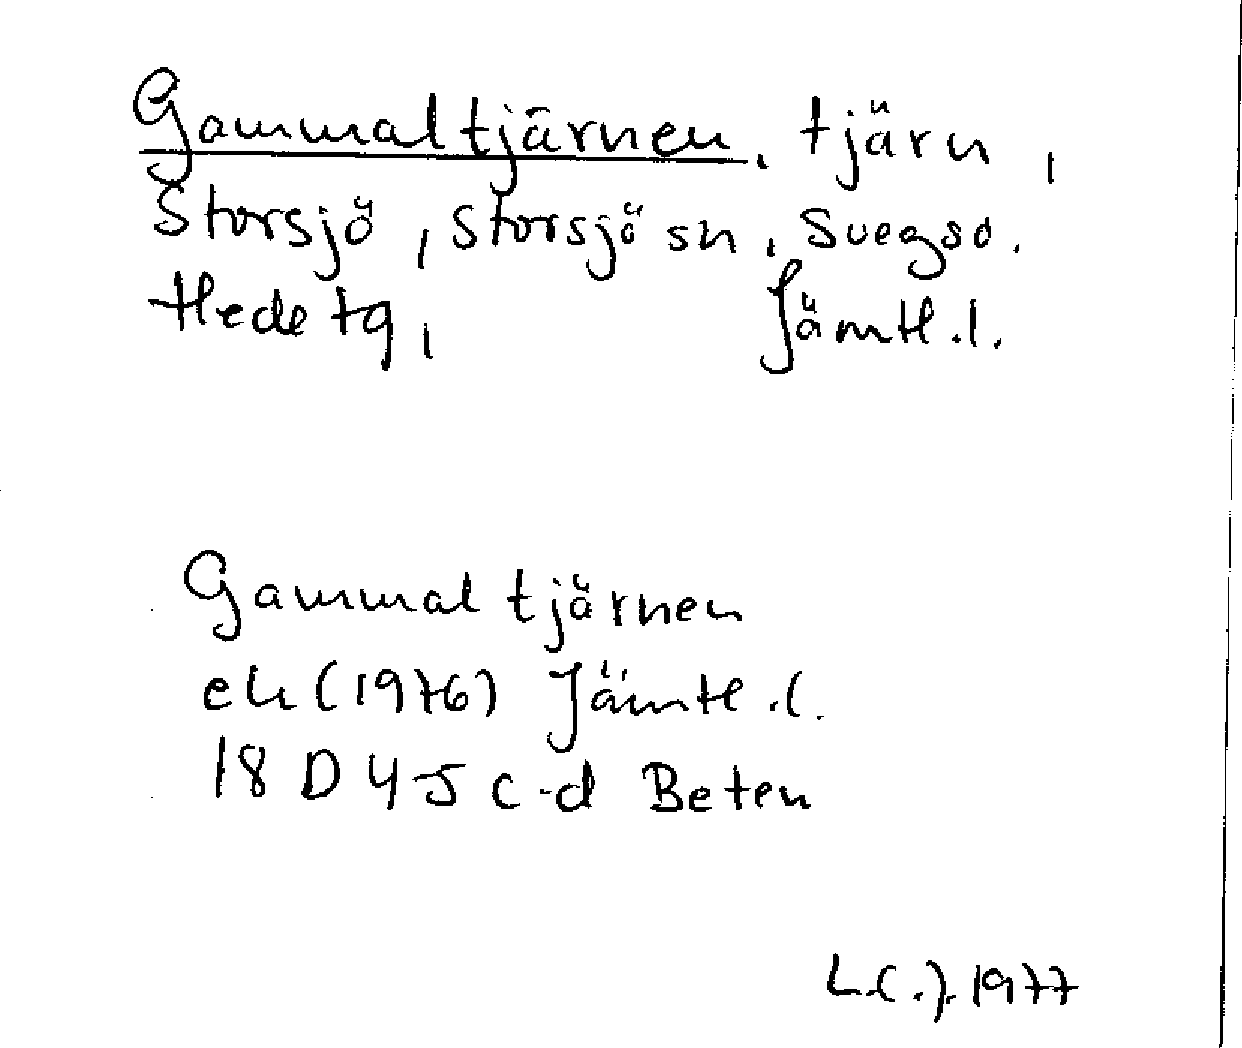 Gammaltjärnen, tjärn,
Storsjö, Storsjö sn, Svegs d.
Hede tg, Jämtl. l.
Gammaltjärnen
ek (1976) Jämtl. l.
18 D 4 5 c-d Beten
1977